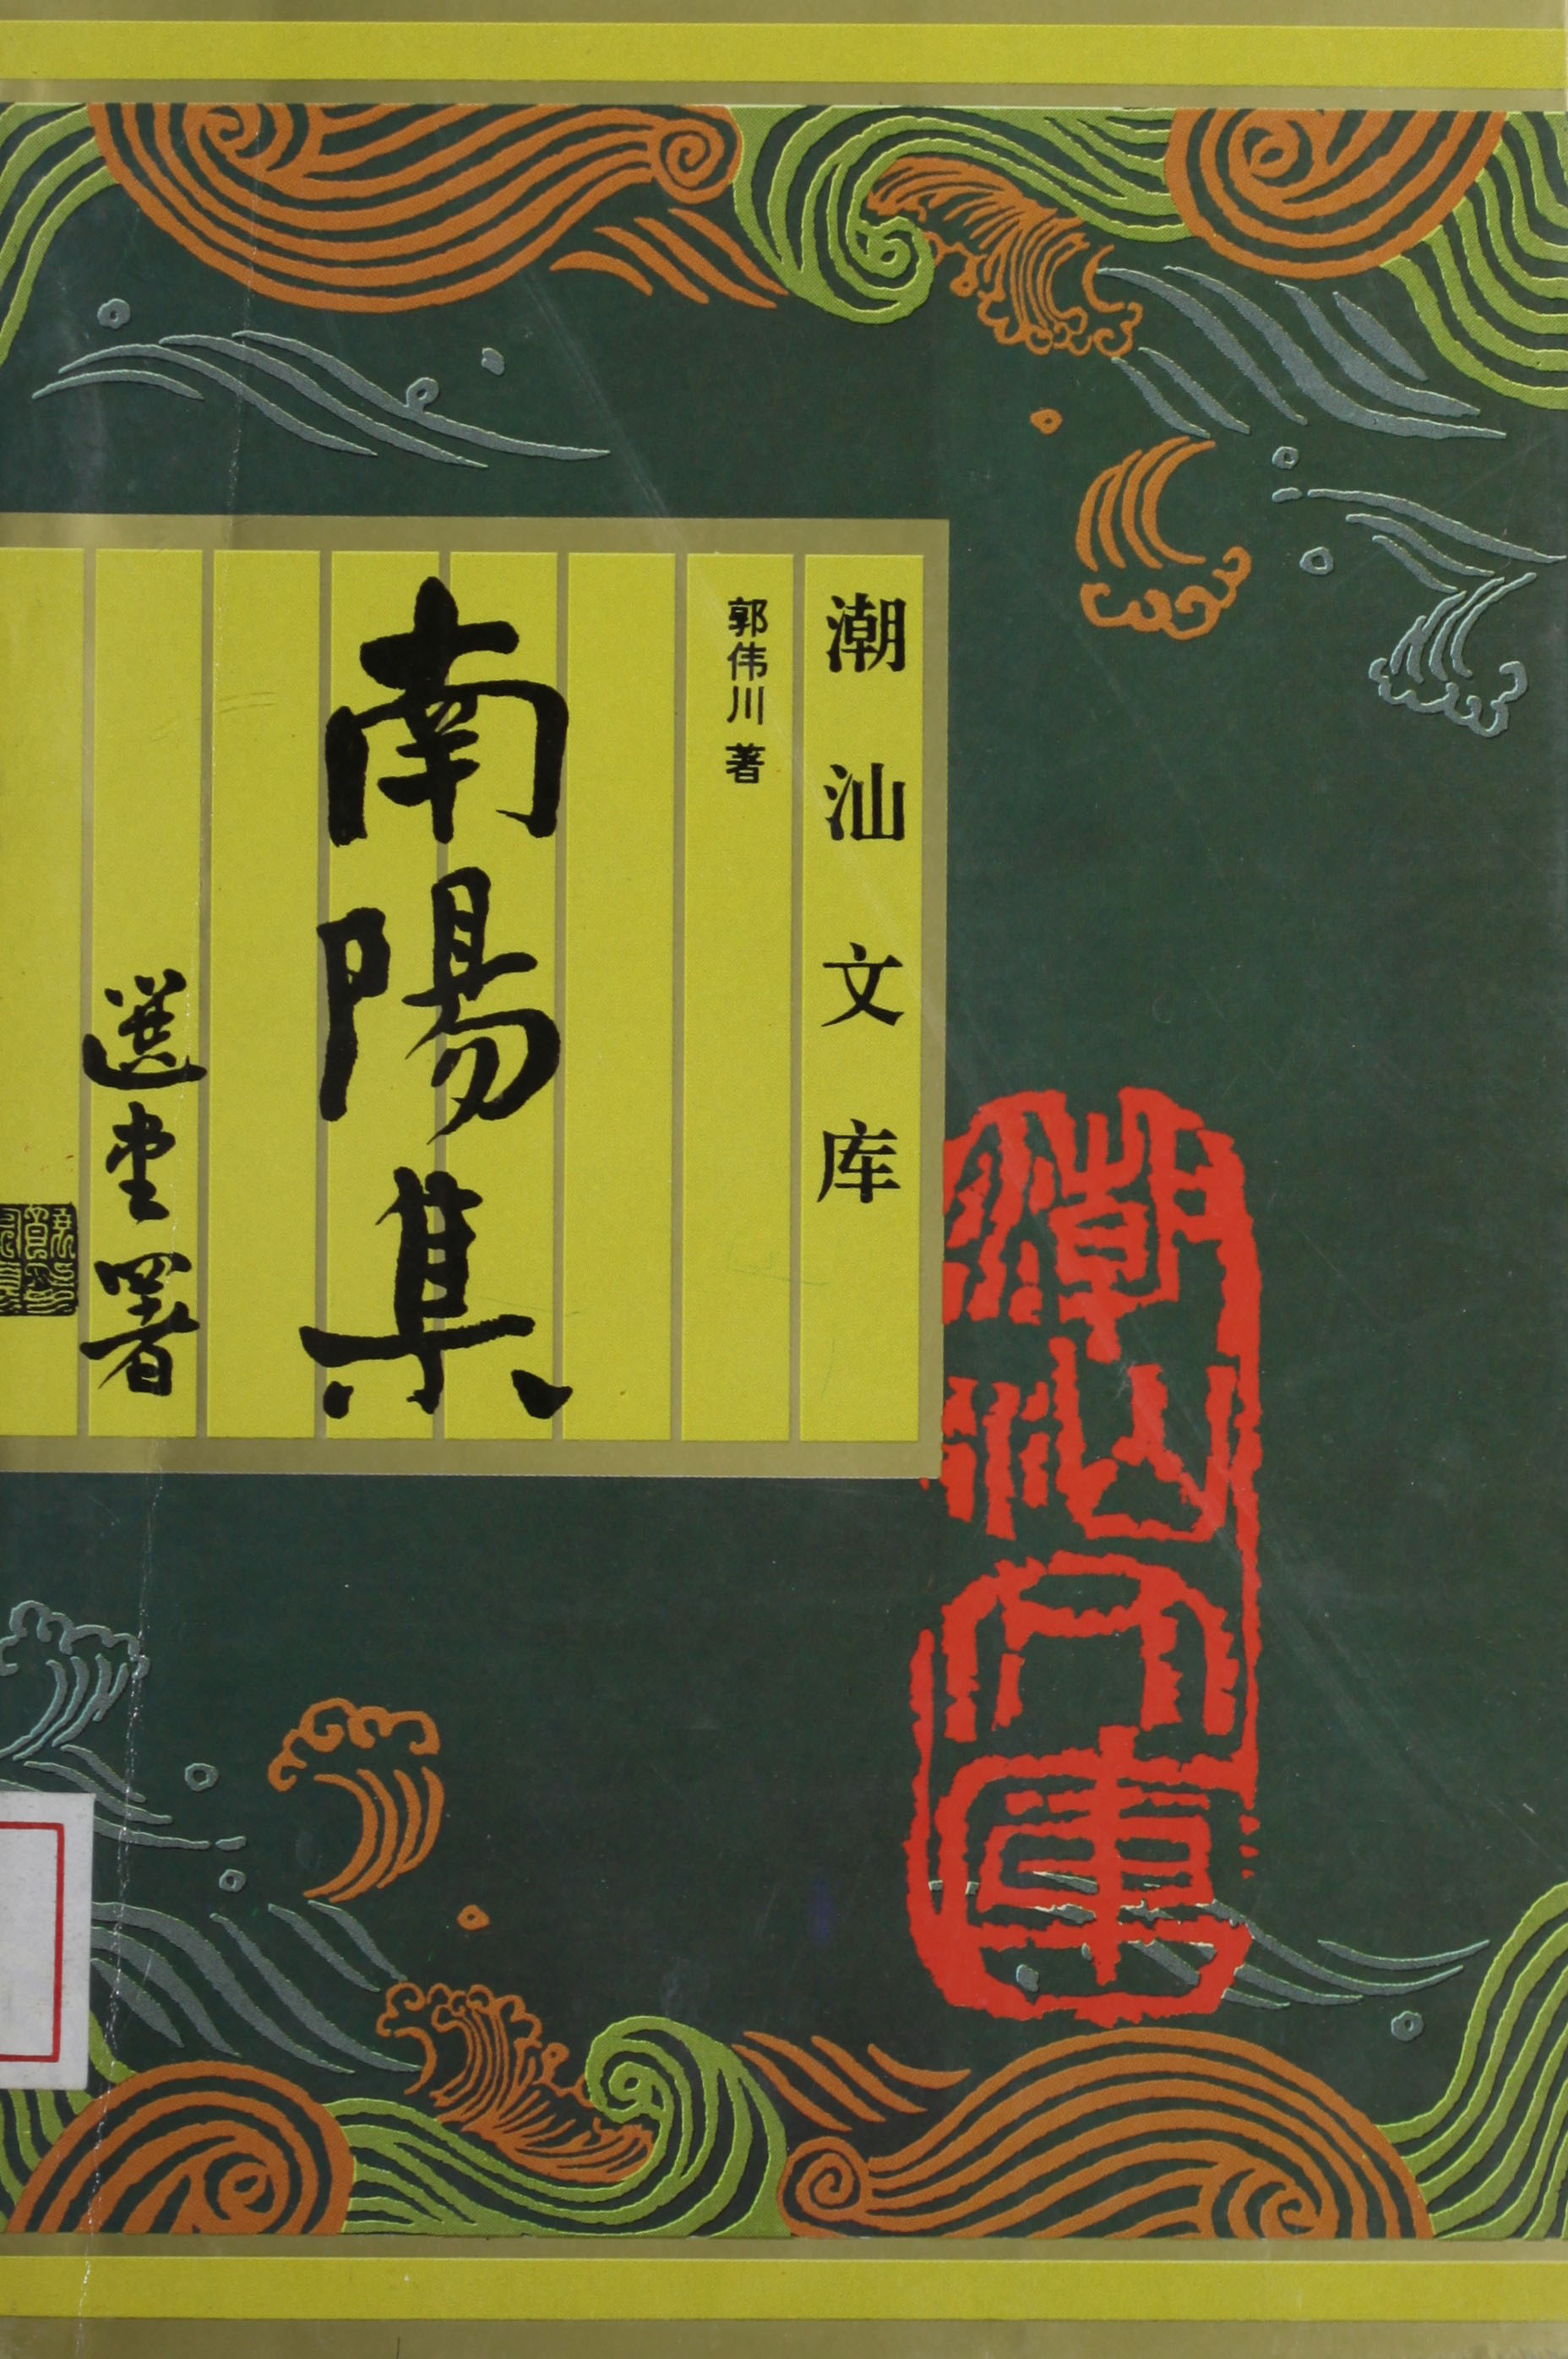 潮汕文库
郭伟川 著
南陽集
選堂署
潮汕文庫